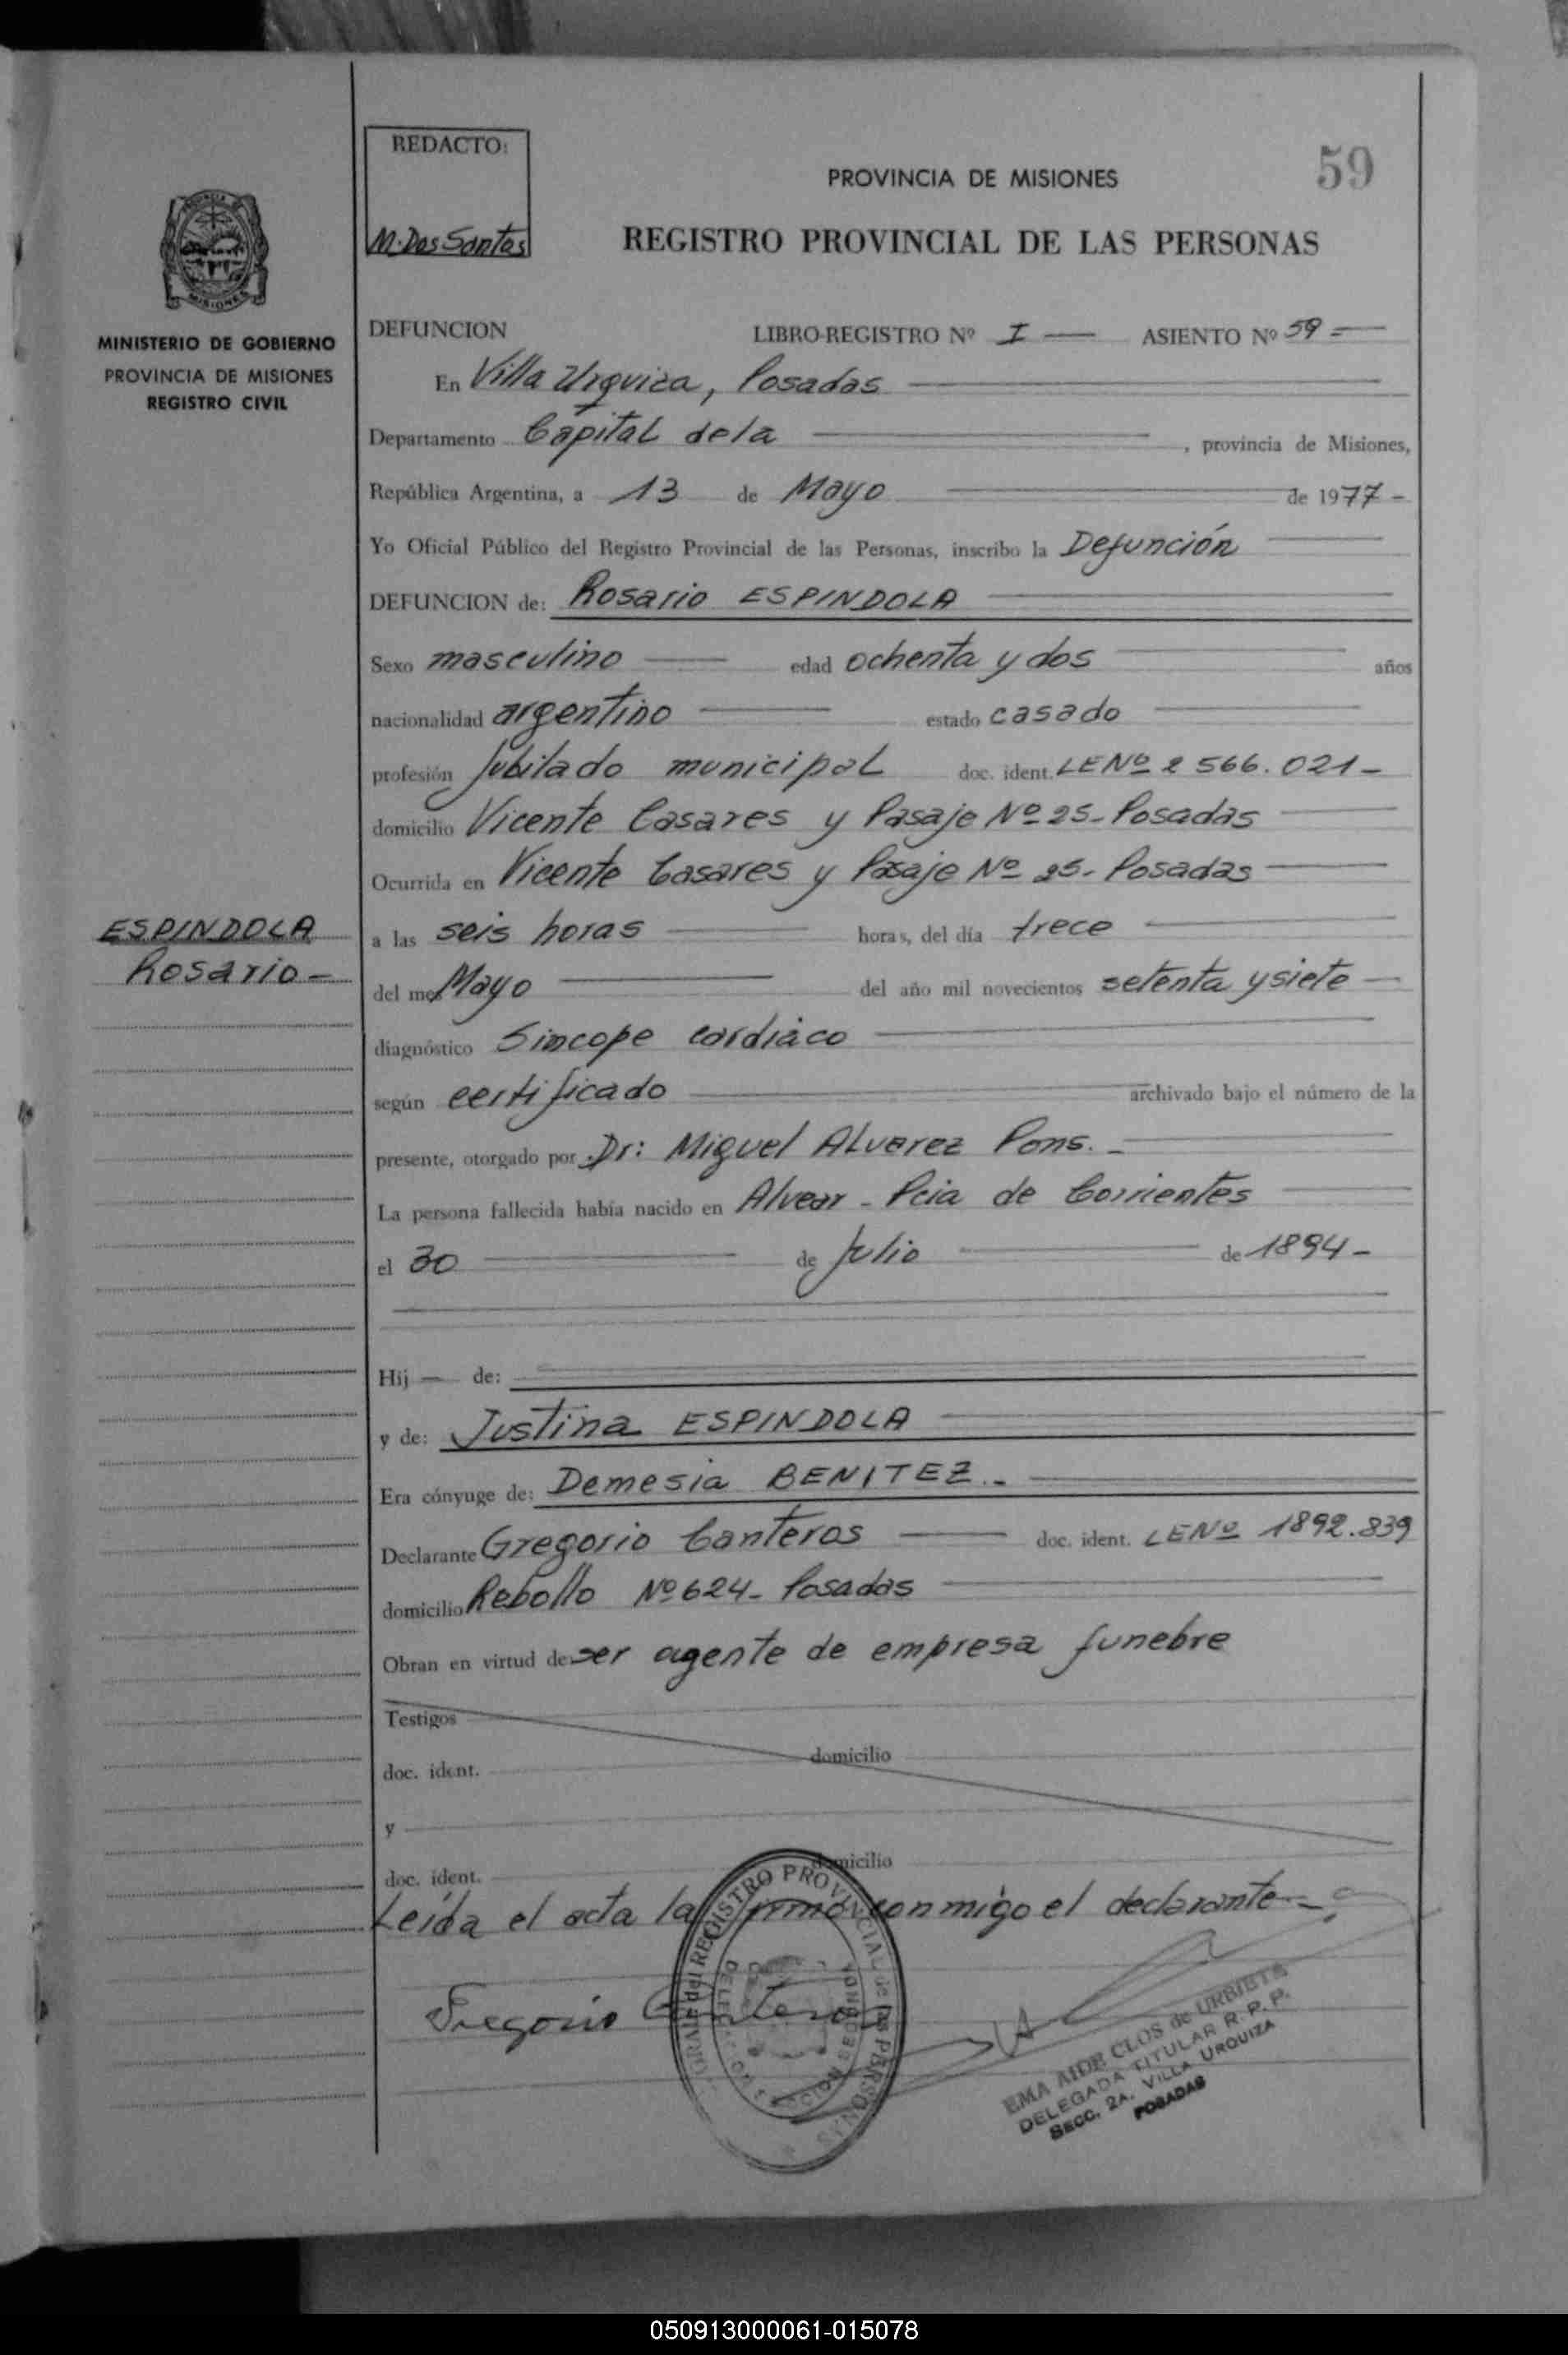 REDACTO:
M. Dos Santos
59
PROVINCIA DE MISIONES
REGISTRO PROVINCIAL DE LAS PERSONAS
MISIONES
MINISTERIO DE GOBIERNO
PROVINCIA DE MISIONES
REGISTRO CIVIL
DEFUNCION LIBRO-REGISTRO Nº I — ASIENTO Nº 59 =
En Villa Urquiza, Posadas
Departamento Capital de la , provincia de Misiones,
República Argentina, a 13 de Mayo de 1977 -
Yo Oficial Público del Registro Provincial de las Personas, inscribo la Defunción
DEFUNCION de: Rosario ESPINDOLA
Sexo masculino edad ochenta y dos años
nacionalidad argentino estado casado
profesión Jubilado municipal doc. ident. LE Nº 2 566.021 -
domicilio Vicente Casares y Pasaje Nº 25 - Posadas
Ocurrida en Vicente Casares y Pasaje Nº 25 - Posadas
ESPINDOLA
Rosario -
a las seis horas horas, del día trece
del mes Mayo del año mil novecientos setenta y siete
diagnóstico Sincope cardiáco
según certificado archivado bajo el número de la
presente, otorgado por Dr: Miguel Alvarez Pons. -
La persona fallecida había nacido en Alvear - Pcia de Corrientes
el 30 de Julio de 1894 -
Hij — de:
y de: Justina ESPINDOLA
Era cónyuge de: Demesia BENITEZ. -
Declarante Gregorio Canteros doc. ident. LE Nº 1892.839
domicilio Rebollo Nº 624 - Posadas
Obran en virtud de ser agente de empresa funebre
Testigos
doc. ident. domicilio
y
doc. ident. domicilio
Leída el acta la firmó conmigo el declarante -
Gregorio Canteros
REGISTRO PROVINCIAL de las PERSONAS
EMA AIDE CLOS de URBIETA
DELEGADA TITULAR R. P. P.
SECC. 2A. VILLA URQUIZA
POSADAS
050913000061-015078